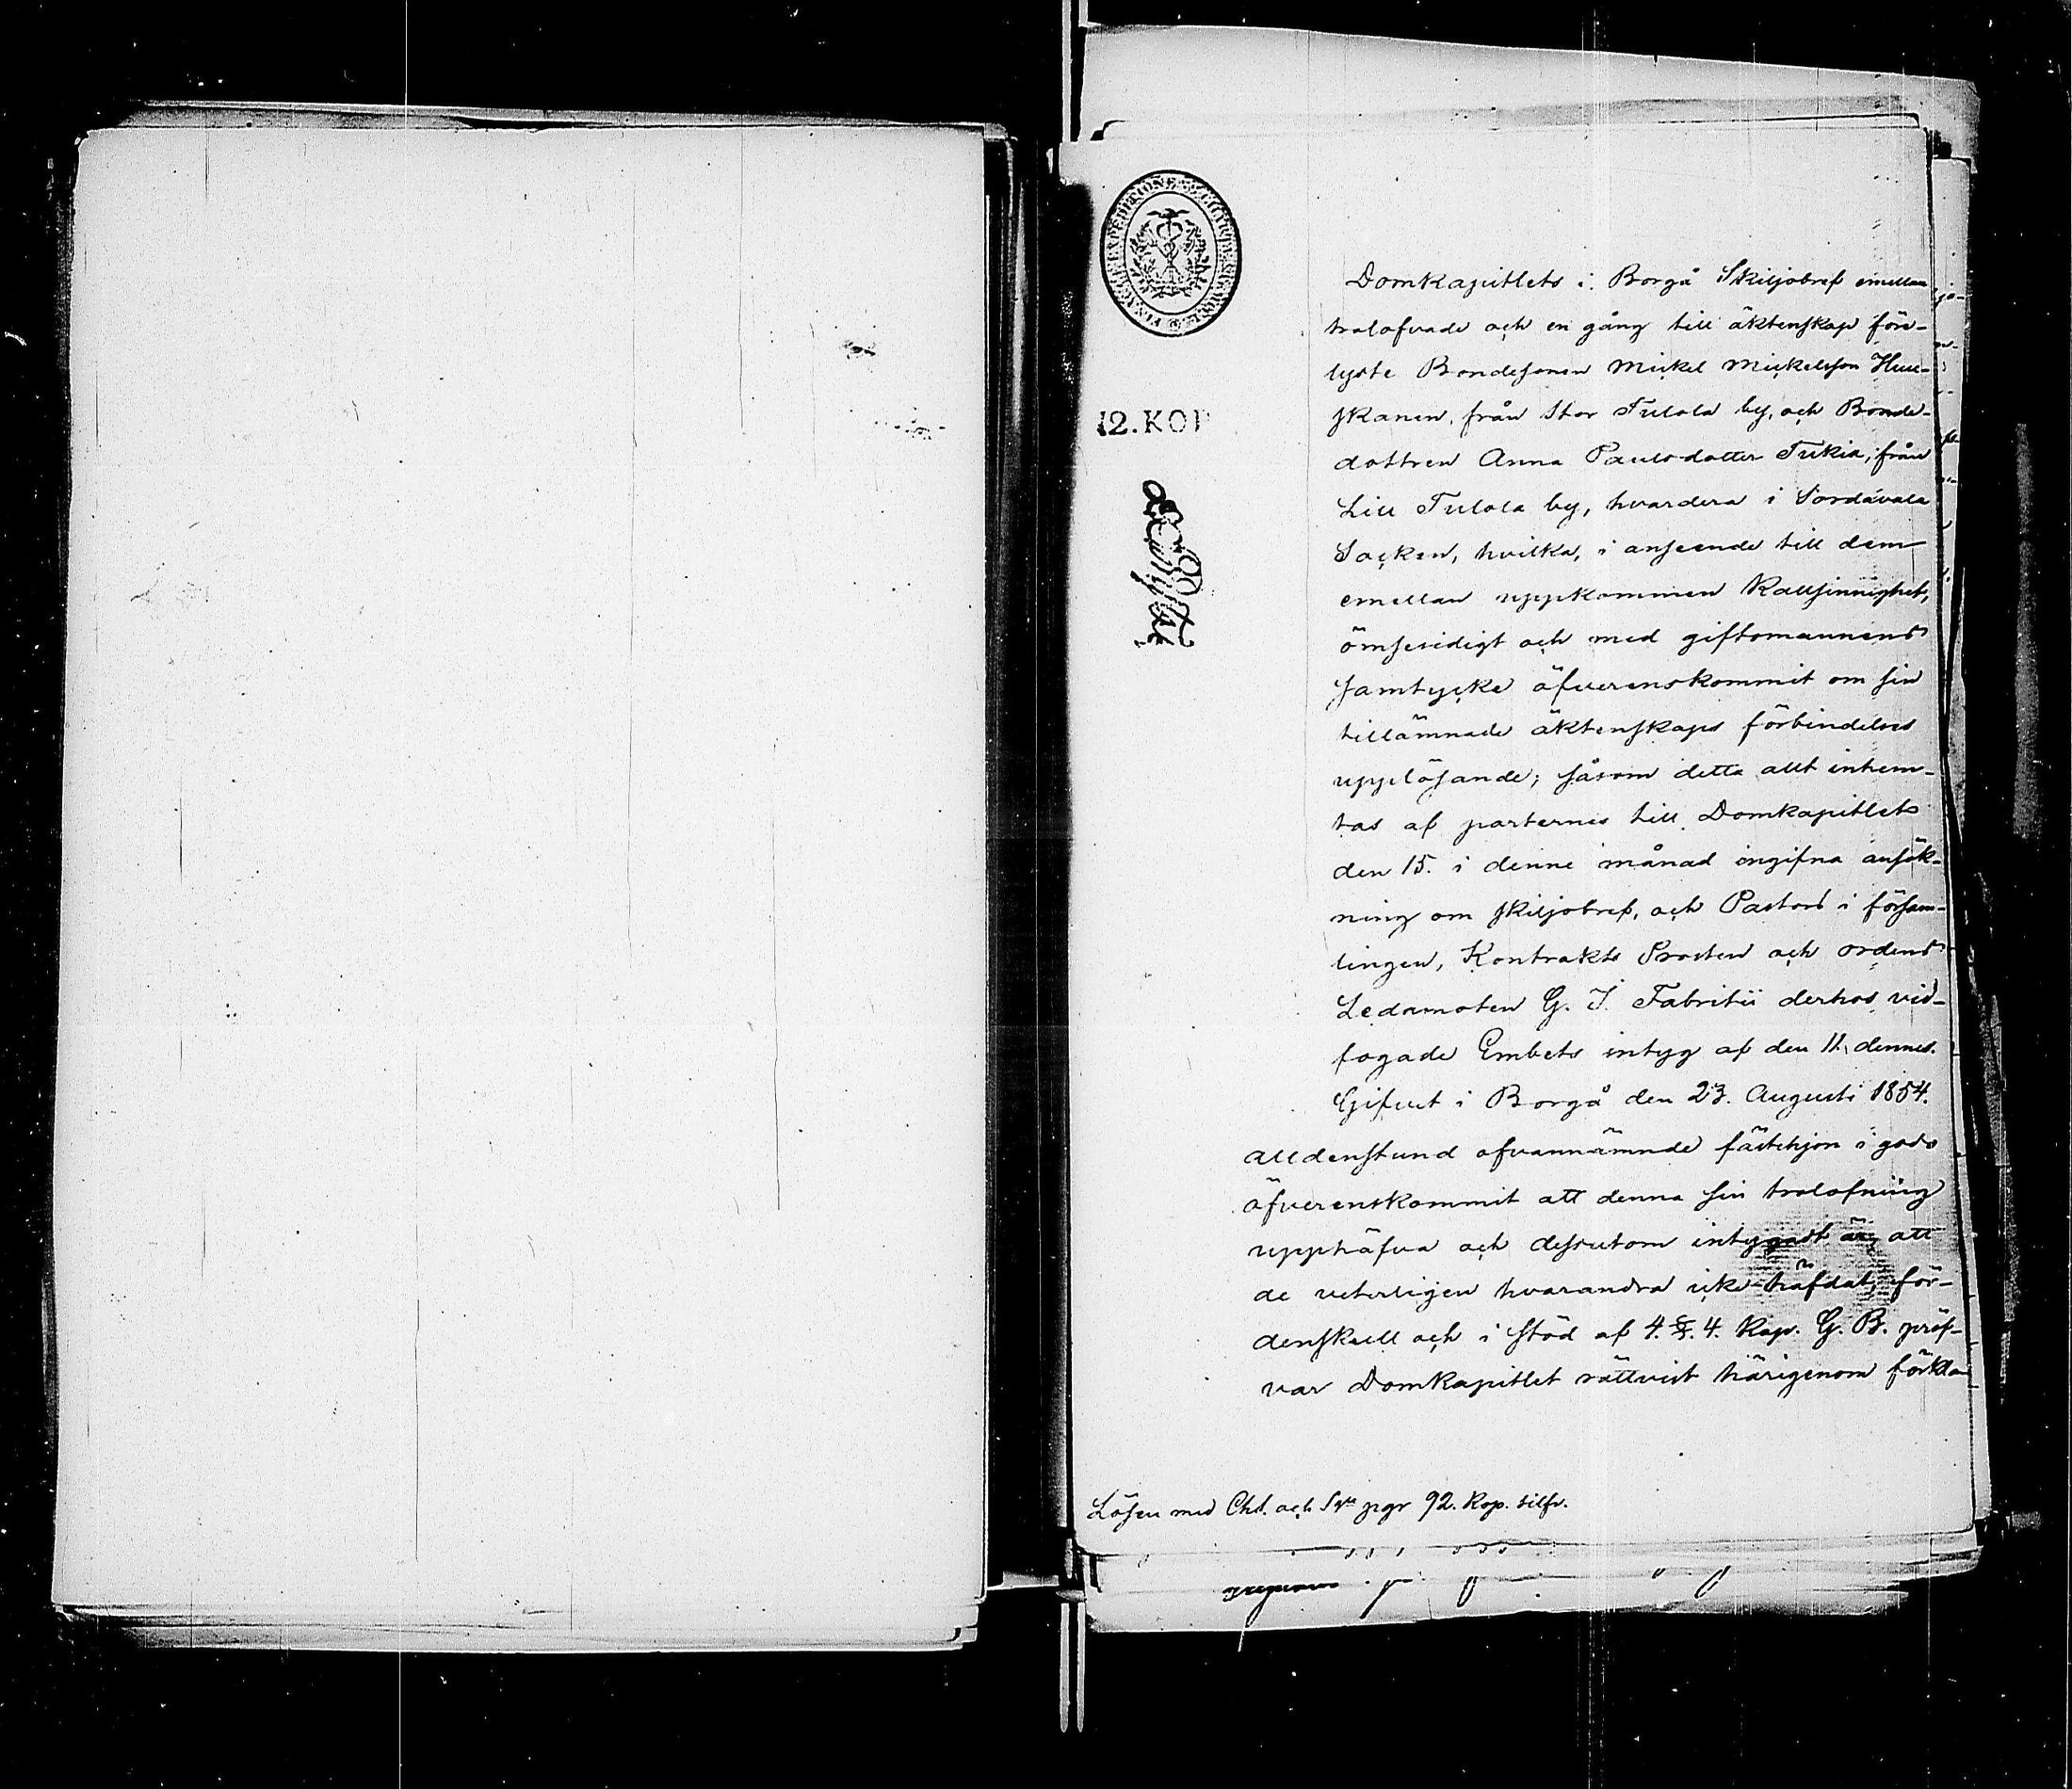 Domkapitlets i Borgå Skiljobref emellan
trolofvade och en gång till äktenskap före-
lyste Bondesonen Mickel Mickelsson Huu-
skanen, från Stor Tulola by, och Bonde-
dottren Anna Paulsdotter Tukia, från
Lill Tulola by, hvardera i Sordavala
Socken, hvilka, i anseende till dem
emellan uppkommen Kallsinnighet,
ömsesidigt och med giftomannens
samtycke öfverenskommit om sin
tillämnade äktenskaps förbindelses
upplösande; såsom detta allt inhem-
tas af parternes till Domkapitlet
den 15. i denne månad ingifna ansök-
ning om skiljobref, och Pastors i försam-
lingen, Kontrakts Prosten och ordens
Ledamoten G. J. Fabritii derhos vid-
fogade Embets intyg af den 11. dennes.
Gifvet i Borgå den 23. Augusti 1854.
Alldenstund ofvannämnde fästehjon i godo
öfverenskommit att denna sin trolofning
upphäfva och dessutom intygadt är, att
de veterligen hvarandra icke häfdat, för-
denskull och i stöd af 4. §. 4. Kap. G. B. pröf-
var Domkapitlet rättvist härigenom förkla-
12. KOP
Lösen med Cht. och pgr 92. Kop. silfv.